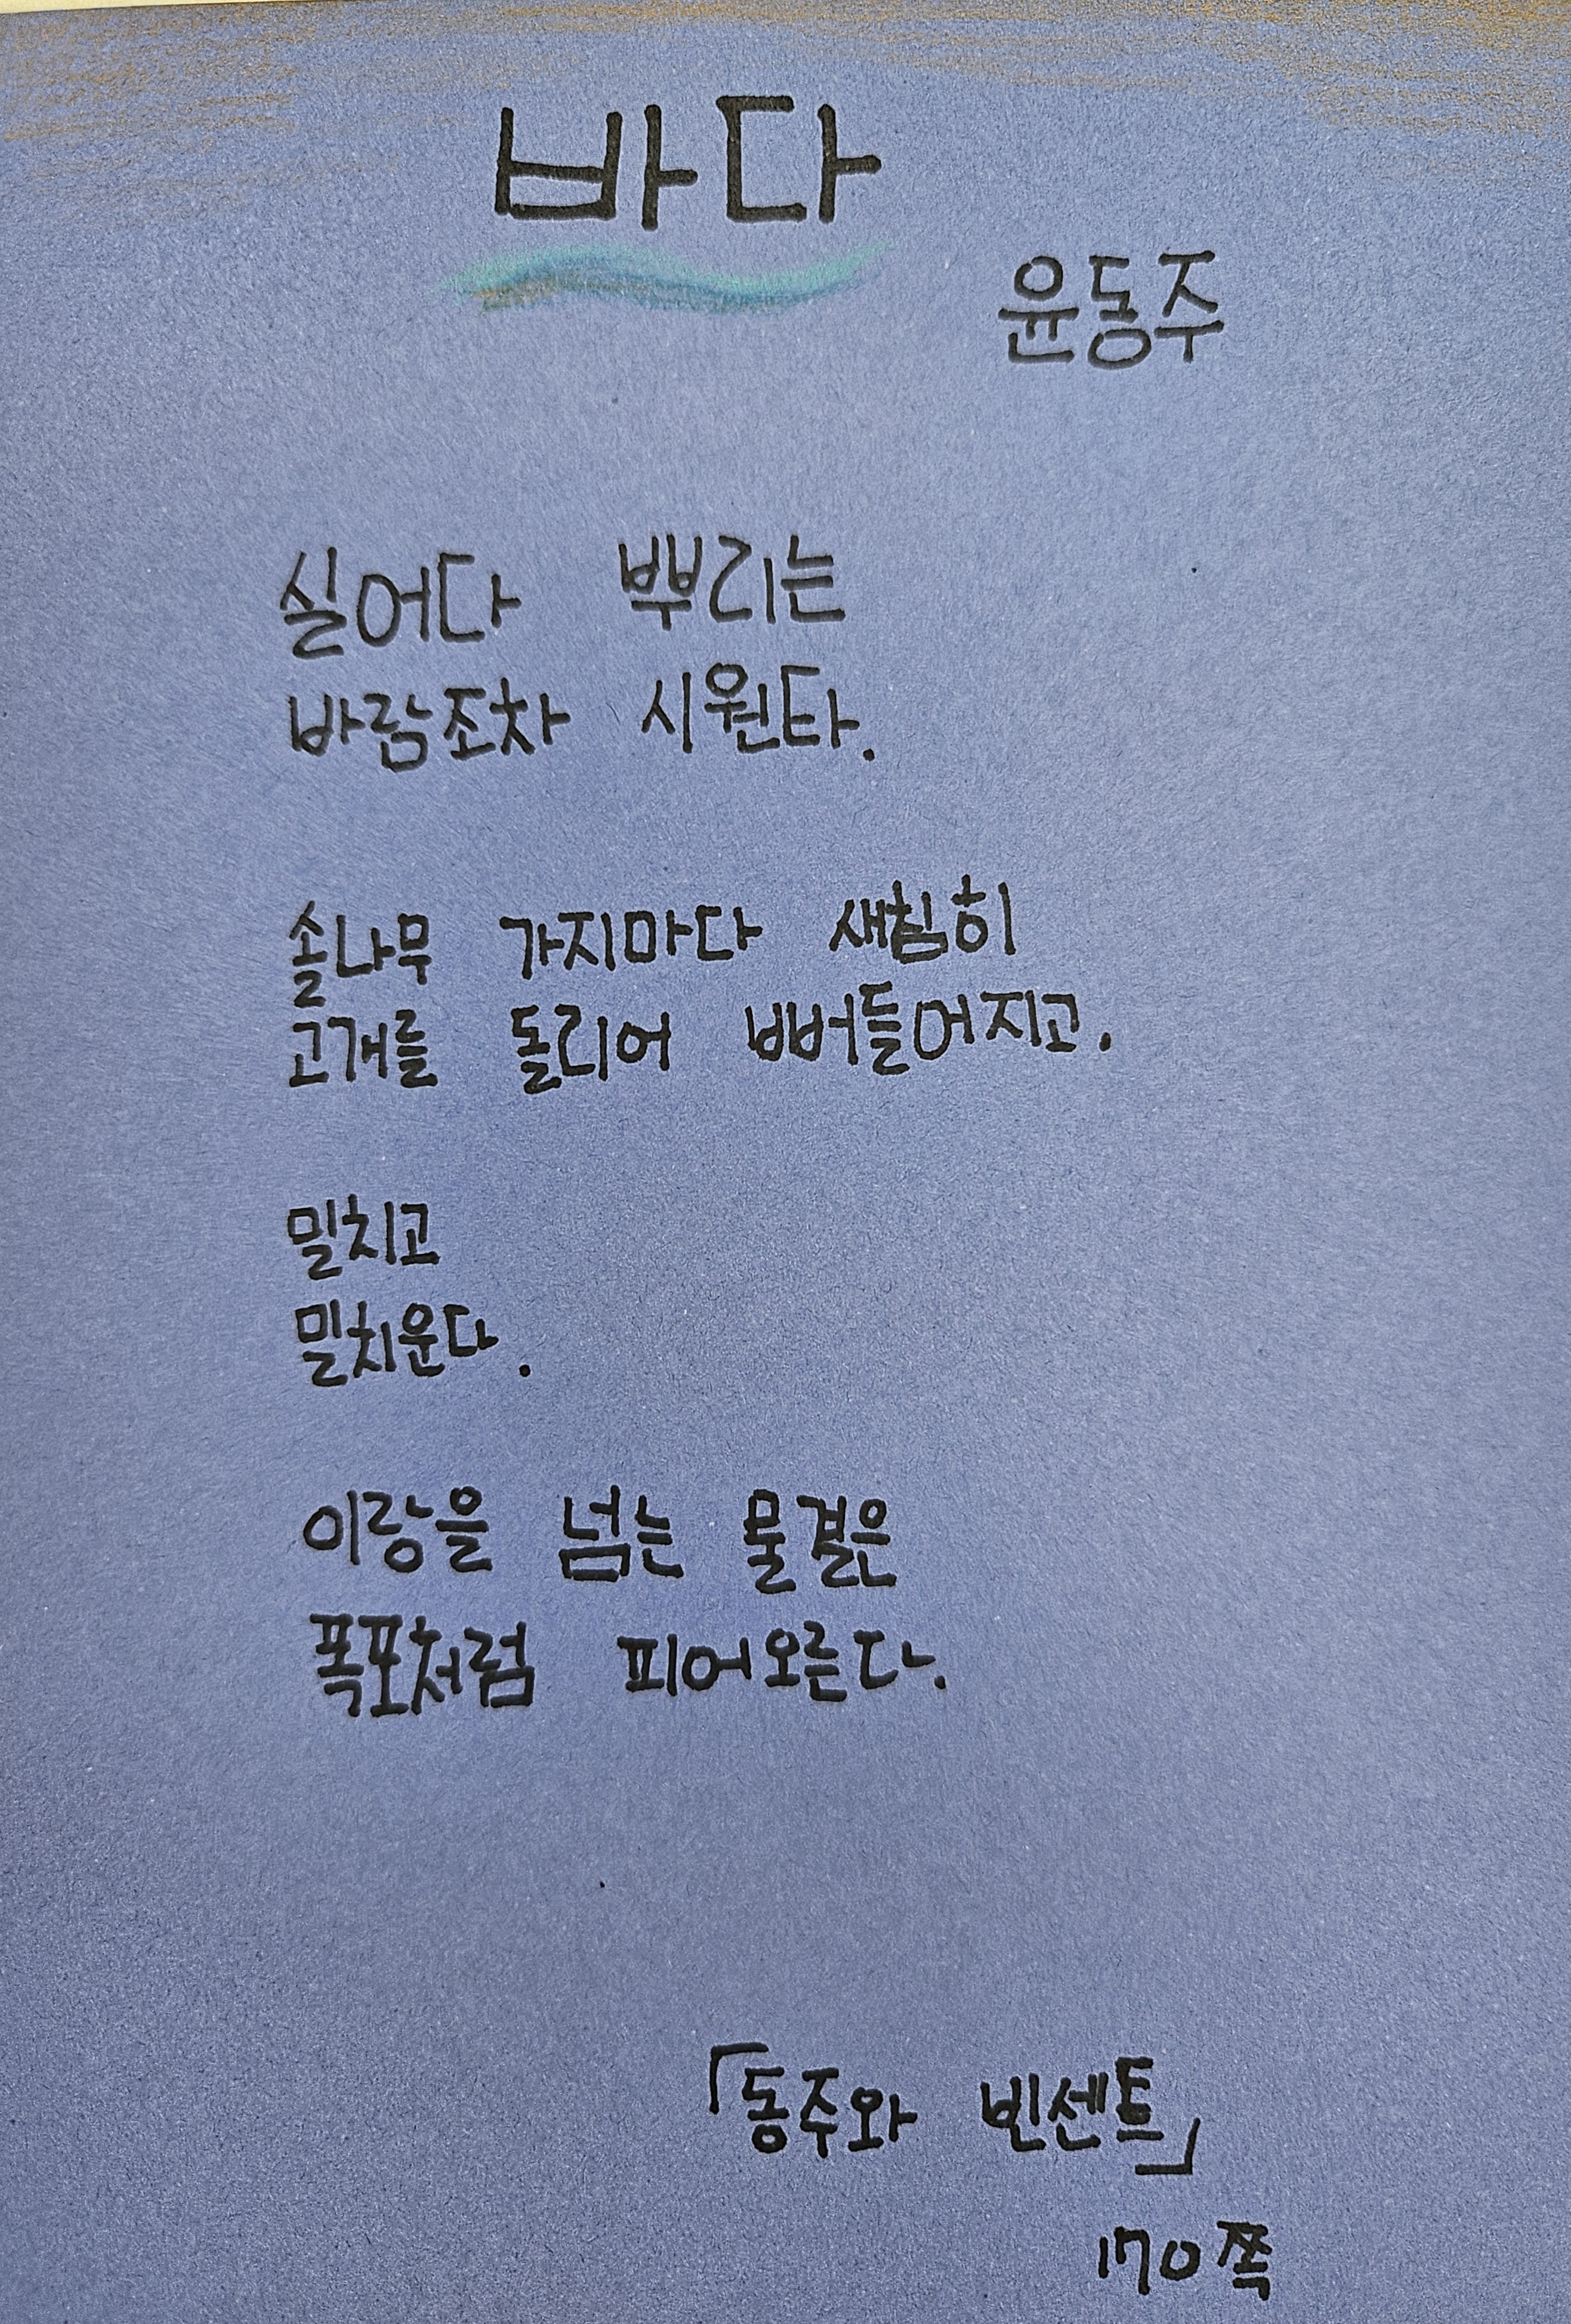 바다
윤동주
실어다 뿌리는
바람조차 시원타.
솔나무 가지마다 새침히
고개를 돌리어 뻐들어지고.
밀치고
밀치운다.
이랑을 넘는 물결은
폭포처럼 피어오른다.
「동주와 빈센트」
170쪽